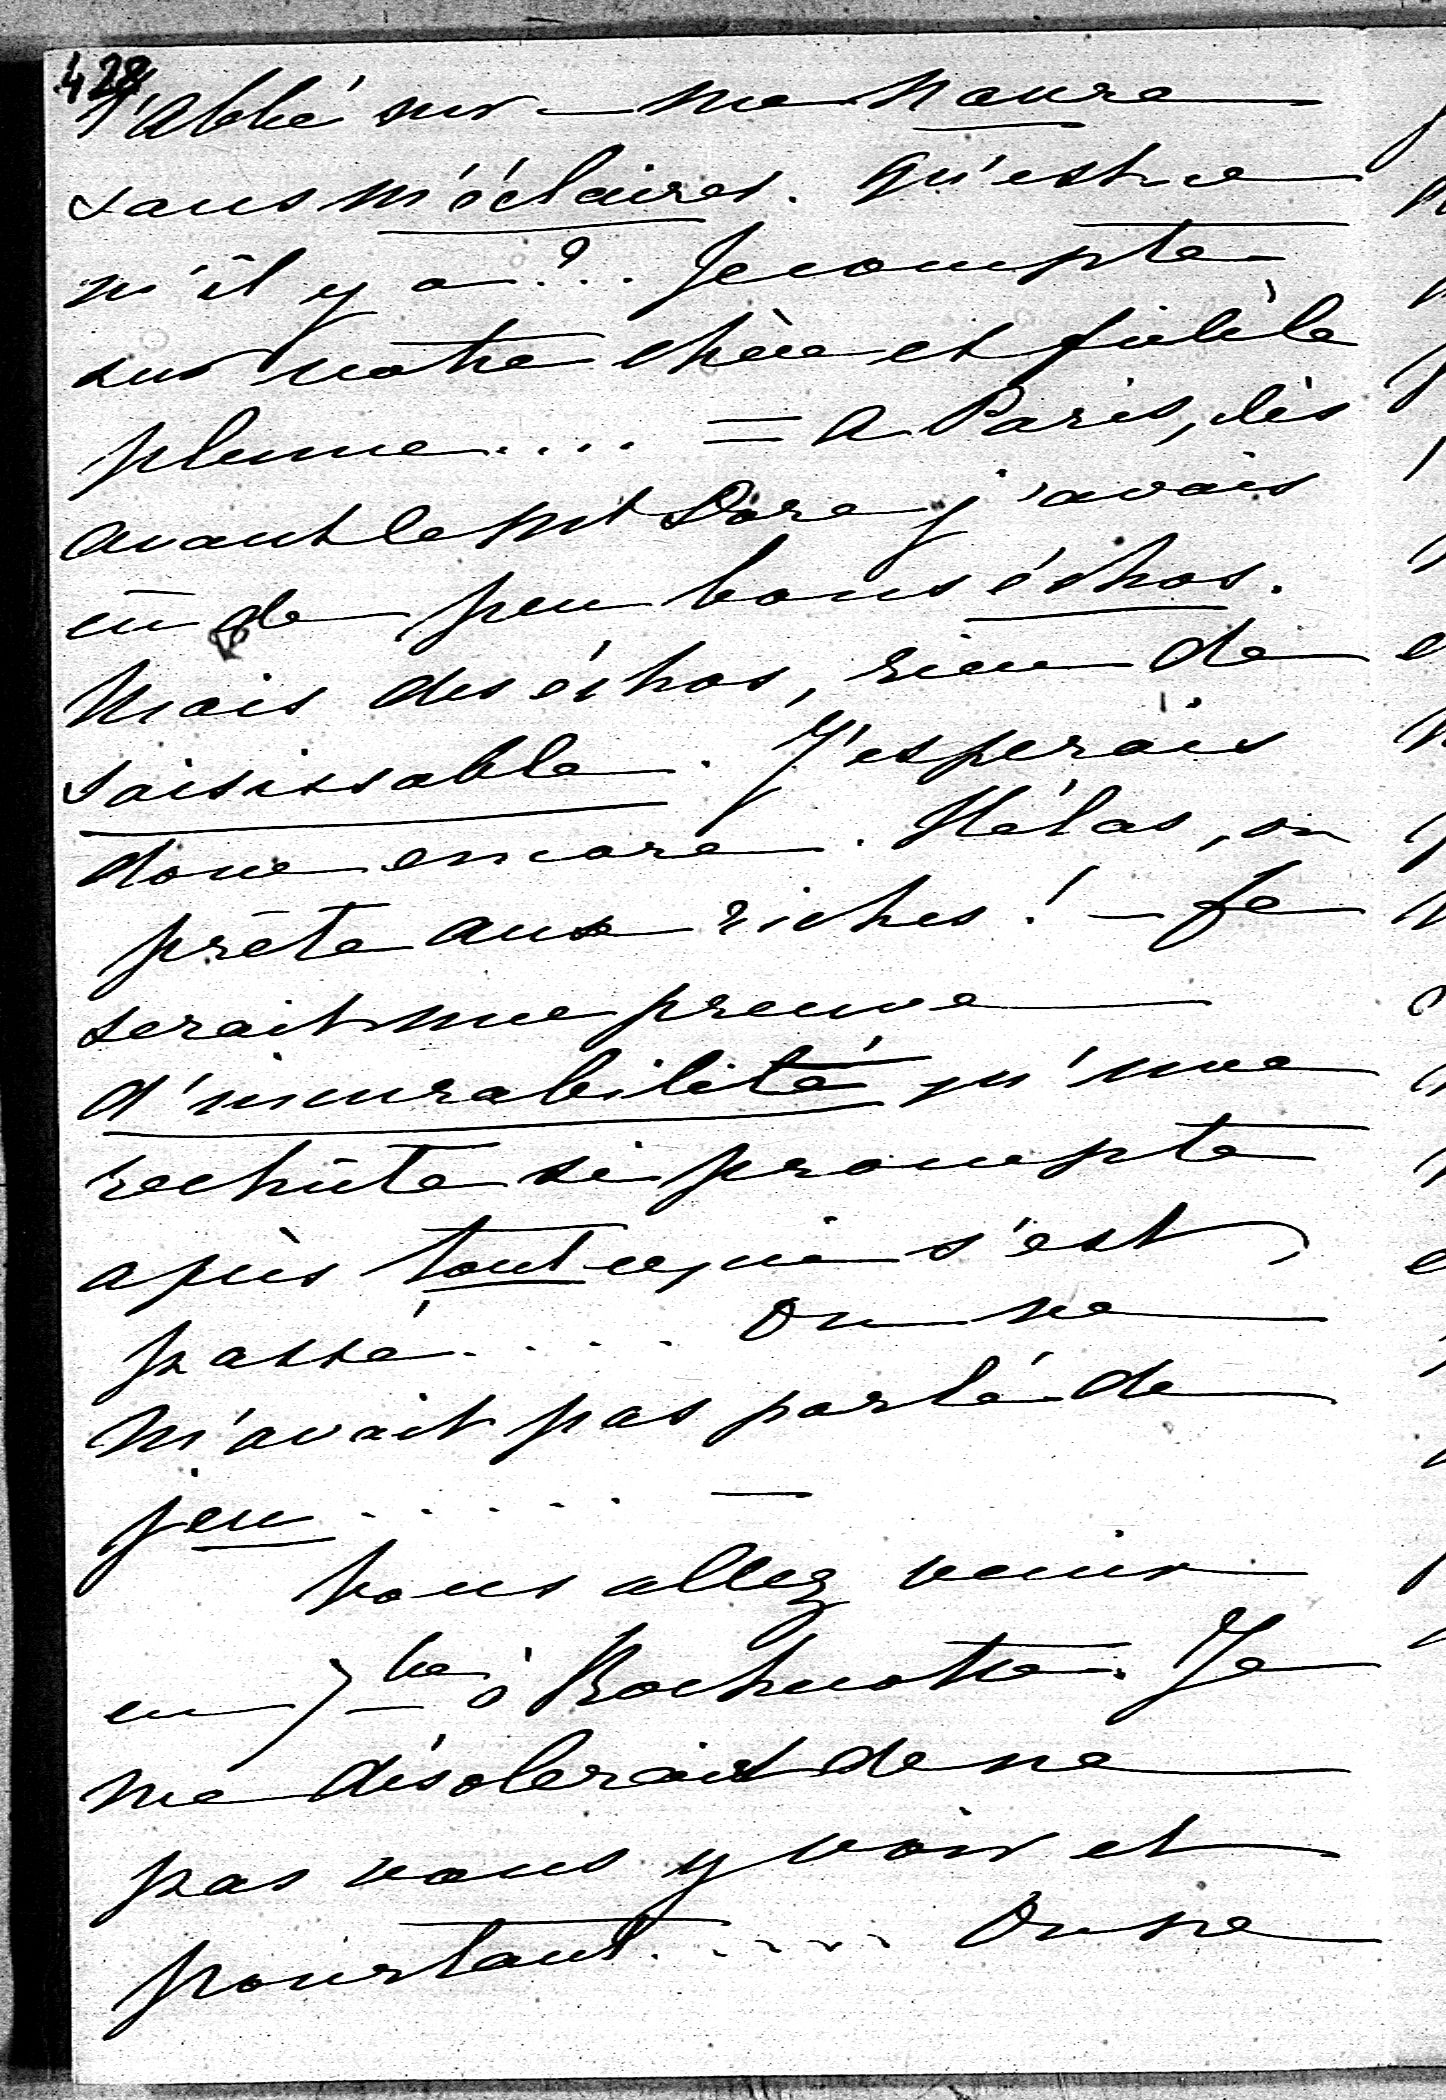 428
l'Abbé me navre
sans m'éclairer. Qu'est-ce
qu'il y a ?.. Je compte
sur votre chère et fidèle
plume.... = A Paris, dès
avant le Mt Dore j'avais
eu de peu bons échos.
Mais des échos, rien de
saisissable. J'esperais
donc encore. Hélas, on
prête aux riches ! — Ce
serait une preuve
d'incurabilité qu'une
rechûte si prompte
après tout ce qui s'est
passé..... On ne
m'avait pas parlé de
jeu...... —
Vous allez venir
en 7bre à Rochecotte. Je
me désolerais de ne
pas vous y voir et
pourtant...... On ne